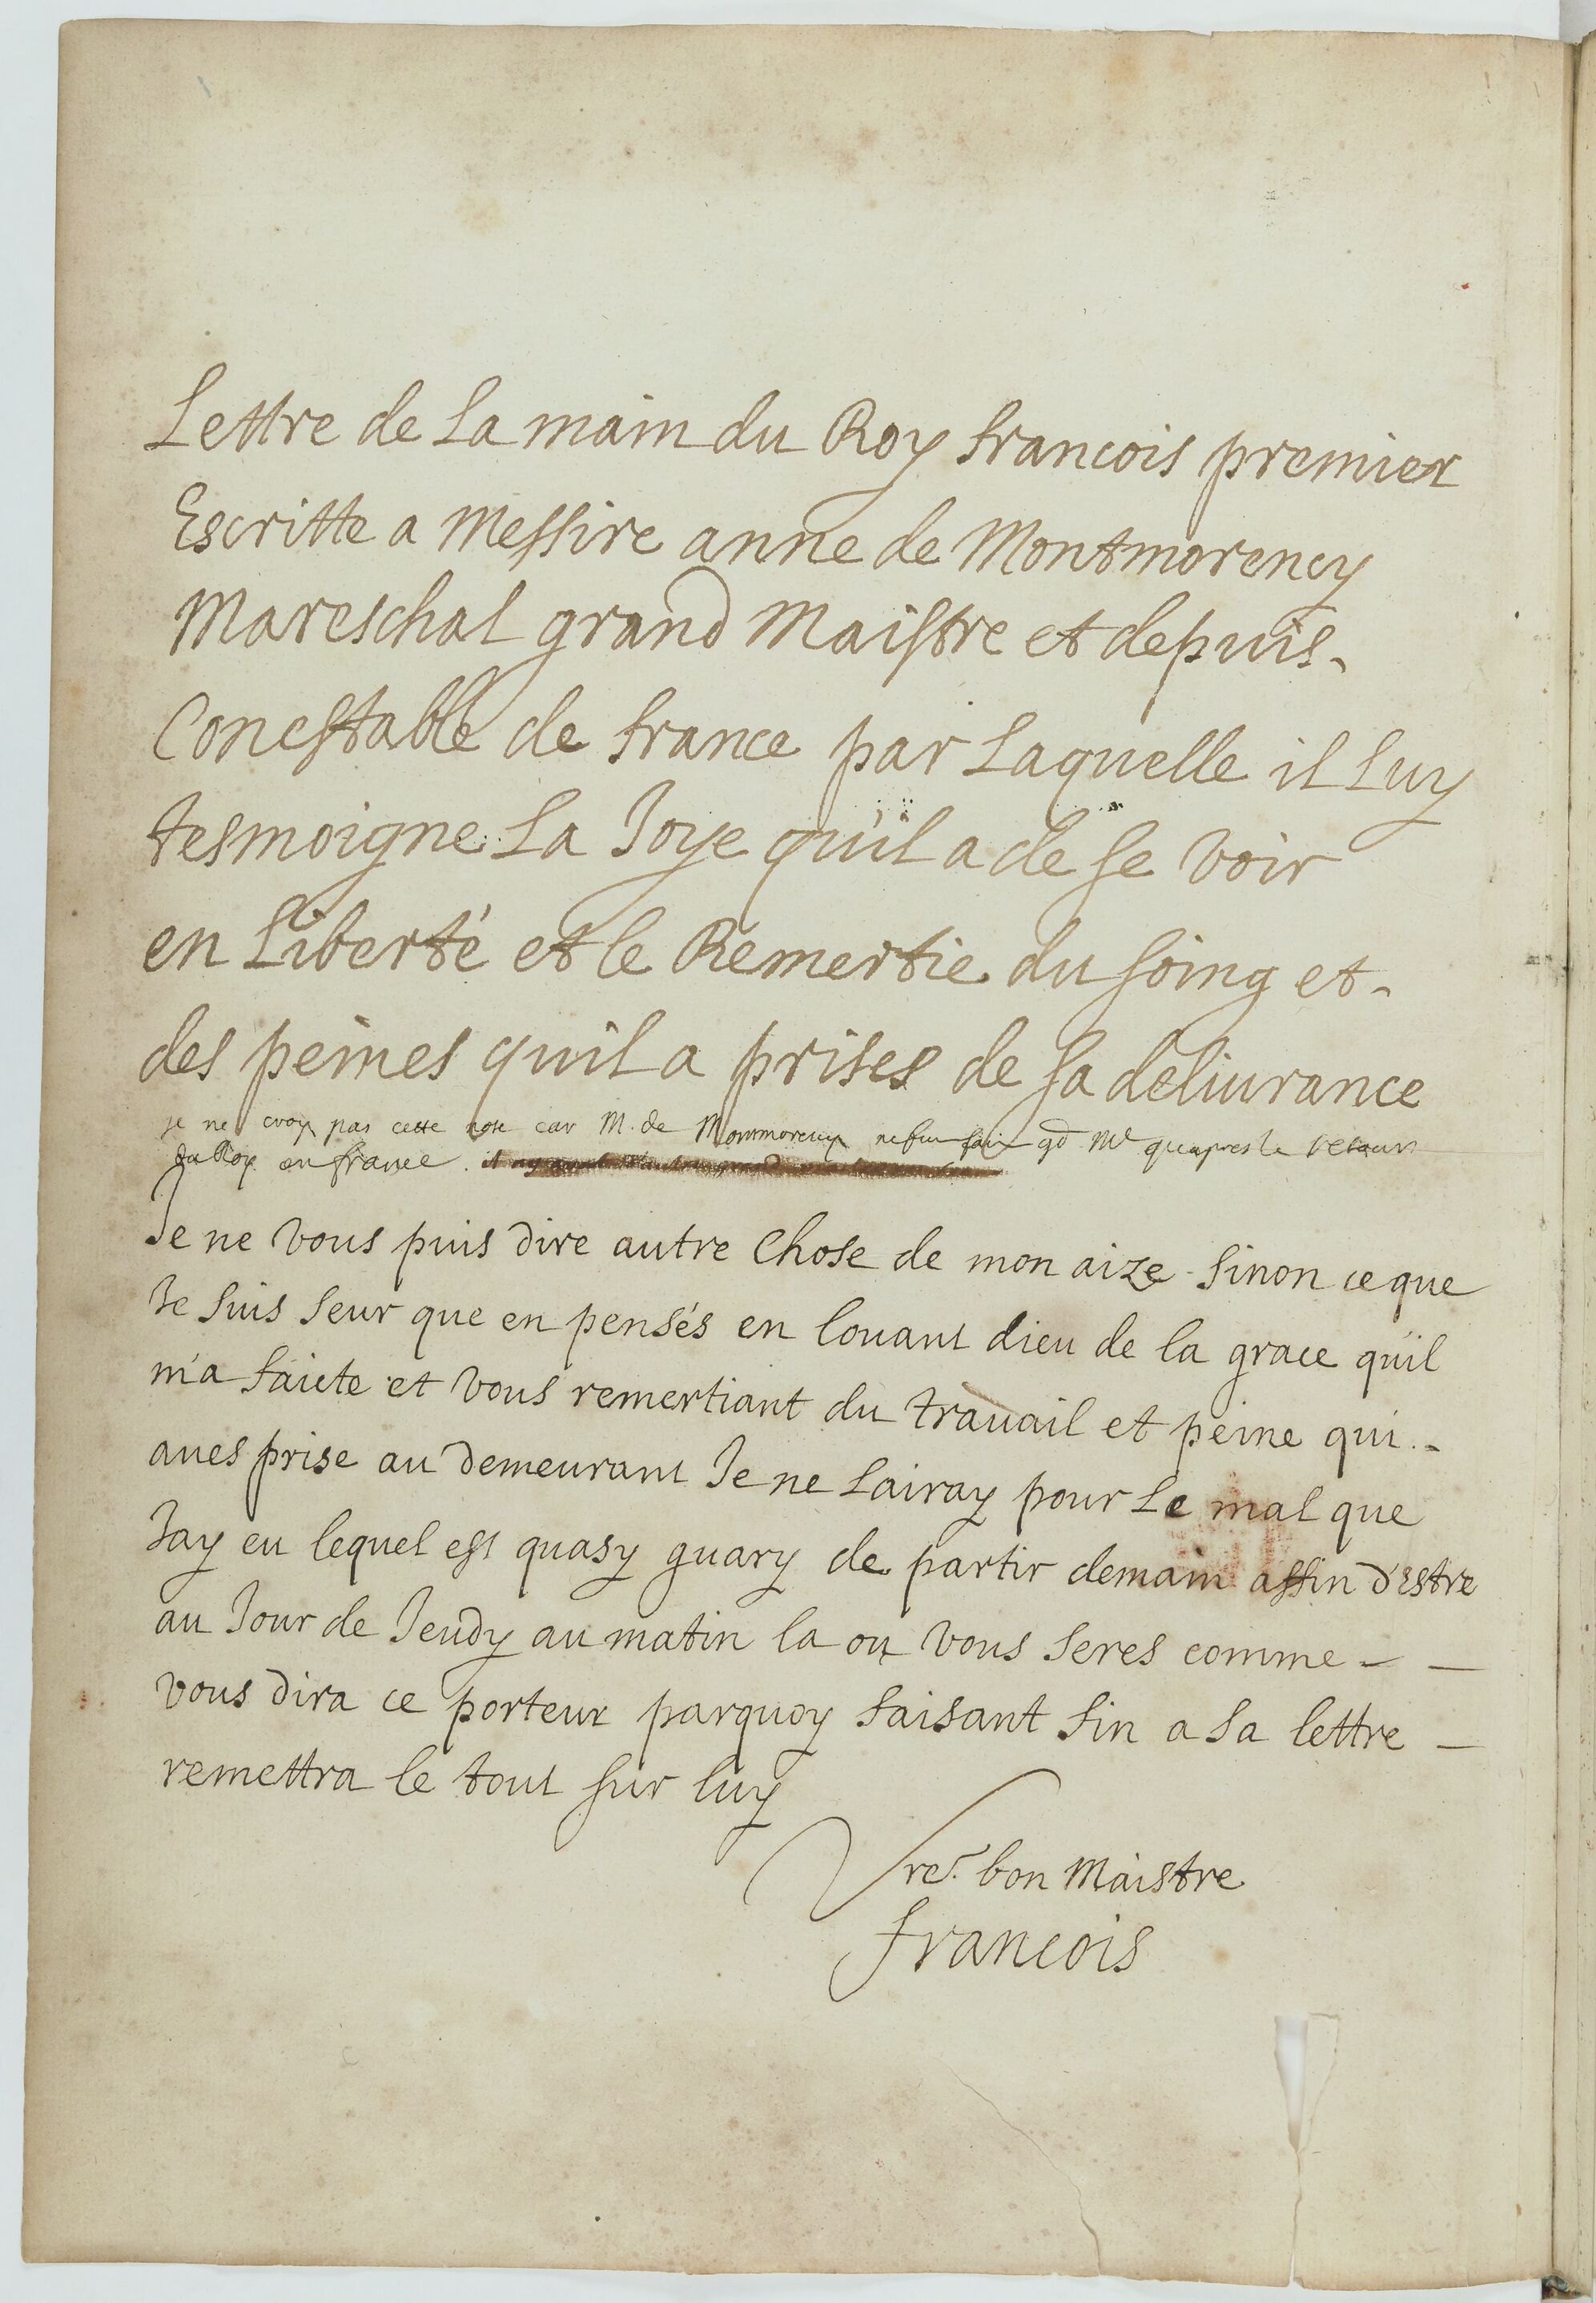 Lettre de La main du Roy francois premier
Escritte a Messire anne de Montmorency
Mareschal grand Maistre et depuis
Conestable de france par Laquelle il Luy
tesmoigne La Joye qu'il a de se voir
en Liberté et le Remertie du soing et
des peines qu'il a prises de sa deliurance
je ne croy pas cette note car M. de Mommorency ne fut fait gd Me qu'apres le retour
du Roy en france.
Je ne vous puis dire autre chose de mon aize sinon ce que
Je suis seur que en pensés en louant dieu de la grace qu'il
m'a faicte et vous remertiant du trauail et peine qui
aues prise au demeurant Je ne Lairay pour Le mal que
Jay eu lequel est quasy guary de partir demain affin d'Estre
au Jour de Jeudy au matin la ou vous seres comme
vous dira ce porteur parquoy faisant fin a sa lettre
remettra le tout sur luy
Vre. bon Maistre
francois